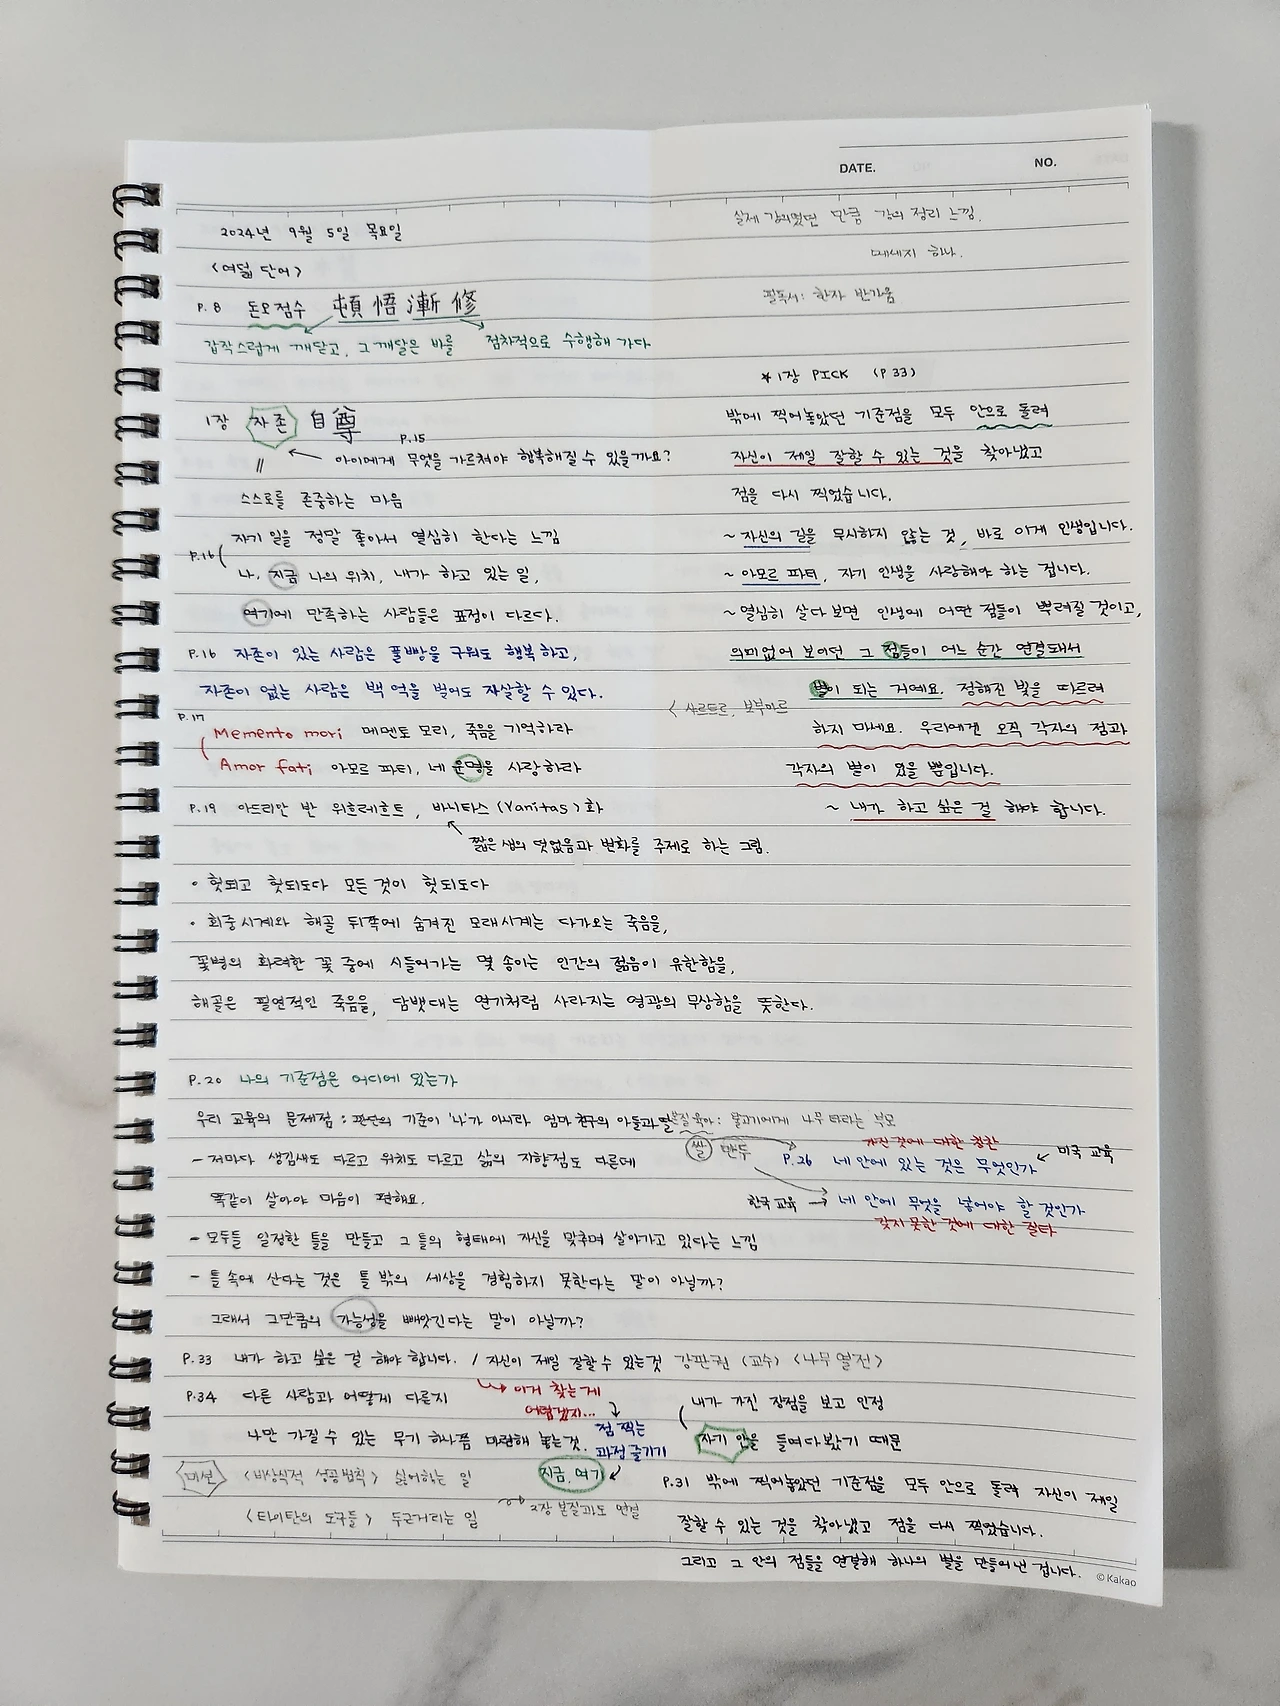 DATE.
NO.
실제 강의였던 만큼 강의 정리 느낌.
메세지 하나.
필독서: 한자 반가움
2024년 9월 5일 목요일
<여덟 단어>
P.8 돈오점수 頓悟漸修
갑작스럽게 깨닫고, 그 깨달은 바를 점차적으로 수행해 가다
1장 자존 自尊
P.15
아이에게 무엇을 가르쳐야 행복해질 수 있을까요?
//
스스로를 존중하는 마음
P.16
자기 일을 정말 좋아서 열심히 한다는 느낌
나, 지금 나의 위치, 내가 하고 있는 일,
여기에 만족하는 사람들은 표정이 다르다.
P.16 자존이 있는 사람은 풀빵을 구워도 행복하고,
자존이 없는 사람은 백 억을 벌어도 자살할 수 있다.
P.17
Memento mori 메멘토 모리, 죽음을 기억하라
Amor fati 아모르 파티, 네 운명을 사랑하라
P.19 아드리안 반 위흐레흐트, 바니타스 (Vanitas)화
짧은 생의 덧없음과 변화를 주제로 하는 그림.
• 헛되고 헛되도다 모든 것이 헛되도다
• 회중시계와 해골 뒤쪽에 숨겨진 모래시계는 다가오는 죽음을,
꽃병의 화려한 꽃 중에 시들어가는 몇 송이는 인간의 젊음이 유한함을,
해골은 필연적인 죽음을, 담뱃대는 연기처럼 사라지는 영광의 무상함을 뜻한다.
★ 1장 PICK (P 33)
밖에 찍어놓았던 기준점을 모두 안으로 돌려
자신이 제일 잘할 수 있는 것을 찾아냈고
점을 다시 찍었습니다.
~ 자신의 길을 무시하지 않는 것, 바로 이게 인생입니다.
~ 아모르 파티, 자기 인생을 사랑해야 하는 겁니다.
~ 열심히 살다보면 인생에 어떤 점들이 뿌려질 것이고,
의미없어 보이던 그 점들이 어느 순간 연결돼서
별이 되는 거예요. 정해진 빛을 따르려
< 사르트르, 보부아르
하지 마세요. 우리에겐 오직 각자의 점과
각자의 별이 있을 뿐입니다.
~ 내가 하고 싶은 걸 해야 합니다.
P.20 나의 기준점은 어디에 있는가
우리 교육의 문제점: 판단의 기준이 '나'가 아니라 엄마 친구의 아들과 딸
본질육아: 물고기에게 나무 타라는 부모
쌀 만두
가진 것에 대한 칭찬
P.26 네 안에 있는 것은 무엇인가
미국 교육
한국 교육 → 네 안에 무엇을 넣어야 할 것인가
갖지 못한 것에 대한 질타
- 저마다 생김새도 다르고 위치도 다르고 삶의 지향점도 다른데
똑같이 살아야 마음이 편해요.
- 모두들 일정한 틀을 만들고 그 틀의 형태에 자신을 맞추며 살아가고 있다는 느낌
- 틀 속에 산다는 것은 틀 밖의 세상을 경험하지 못한다는 말이 아닐까?
그래서 그만큼의 가능성을 빼앗긴다는 말이 아닐까?
P.33 내가 하고 싶은 걸 해야 합니다. / 자신이 제일 잘할 수 있는 것 강판권 (교수) <나무열전>
이거 찾는 게
어렵겠지...
P.34 다른 사람과 어떻게 다른지
나만 가질 수 있는 무기 하나쯤 마련해 놓는 것.
점 찍는
과정 즐기기
지금, 여기
내가 가진 장점을 보고 인정
자기 안을 들여다봤기 때문
미션 <비상식적 성공법칙> 싫어하는 일
<타이탄의 도구들> 두근거리는 일
2장 본질과도 연결
P.31 밖에 찍어놓았던 기준점을 모두 안으로 돌려 자신이 제일
잘할 수 있는 것을 찾아냈고 점을 다시 찍었습니다.
그리고 그 안의 점들을 연결해 하나의 별을 만들어 낸 겁니다.
© Kakao